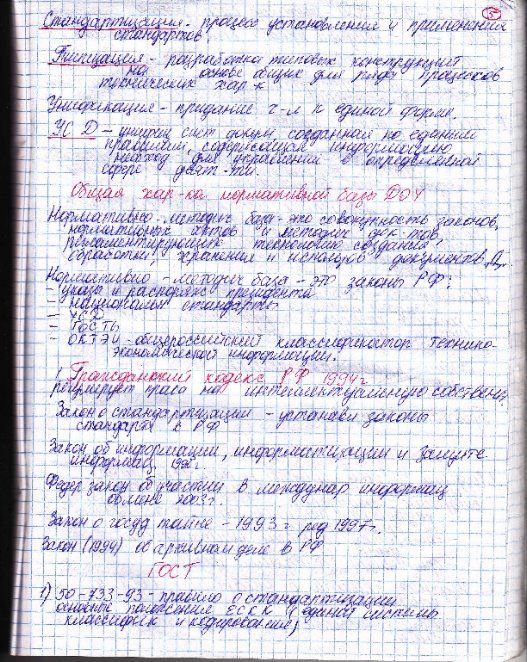 5
Стандартизация - процесс установления и применения
стандартов
Типизация - разработка типовых конструкций
на основе общих для ряда процессов
технических хар-к
Унификация - придание ч-л к единой форме.
УСД - унифиц сист докум, созданная по единым
правилам, содержащих информацию
необход для управления в определенной
сфере деят-ти.
Общая хар-ка нормативной базы ДОУ
Нормативно-методич база - это совокупность законов,
нормативных актов и методич док-тов,
регламентирующих технологию создания,
обработки, хранения и использ документов
Нормативно-методич база - это законы РФ:
- указы и распоряж президента
- национальн стандарты
- УСД
- ГОСТы
- ОКТЭИ - общероссийский классификатор технико-
экономической информации.
1. Гражданский кодекс РФ 1994 г
регулирует права на интеллектуальную собствен.
Закон о стандартизации - установл законы
стандарта в РФ
Закон об информации, информатизации и защите
информац.
Федер закон об участии в междунар информац
обмене
Закон о госуд тайне - 1993 г ред 1997 г.
Закон (1994) об архивном деле в РФ
ГОСТ
1) 50-733-93 - правило о стандартизации
основные положения ЕСКК (единая система
классифик и кодирования)